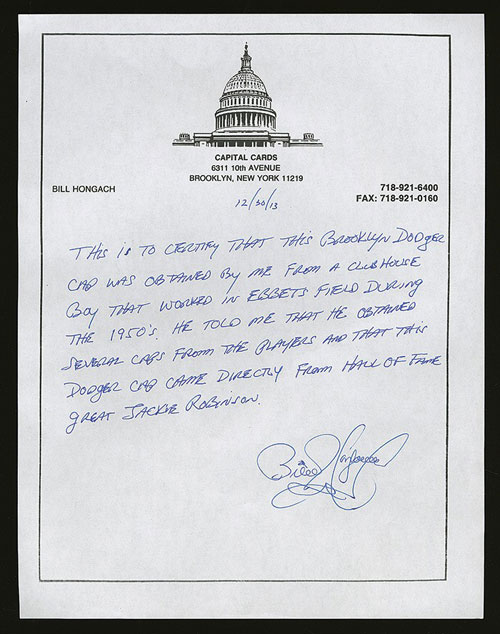 CAPITAL CARDS
6311 10th AVENUE
BROOKLYN, NEW YORK 11219
BILL HONGACH
718-921-6400
FAX: 718-921-0160
12/30/13
THIS IS TO CERTIFY THAT THIS BROOKLYN DODGER
CAP WAS OBTAINED BY ME FROM A CLUBHOUSE
BOY THAT WORKED IN EBBETS FIELD DURING
THE 1950'S. HE TOLD ME THAT HE OBTAINED
SEVERAL CAPS FROM THE PLAYERS AND THAT THIS
DODGER CAP CAME DIRECTLY FROM HALL OF FAME
GREAT JACKIE ROBINSON.
Bill Hongach